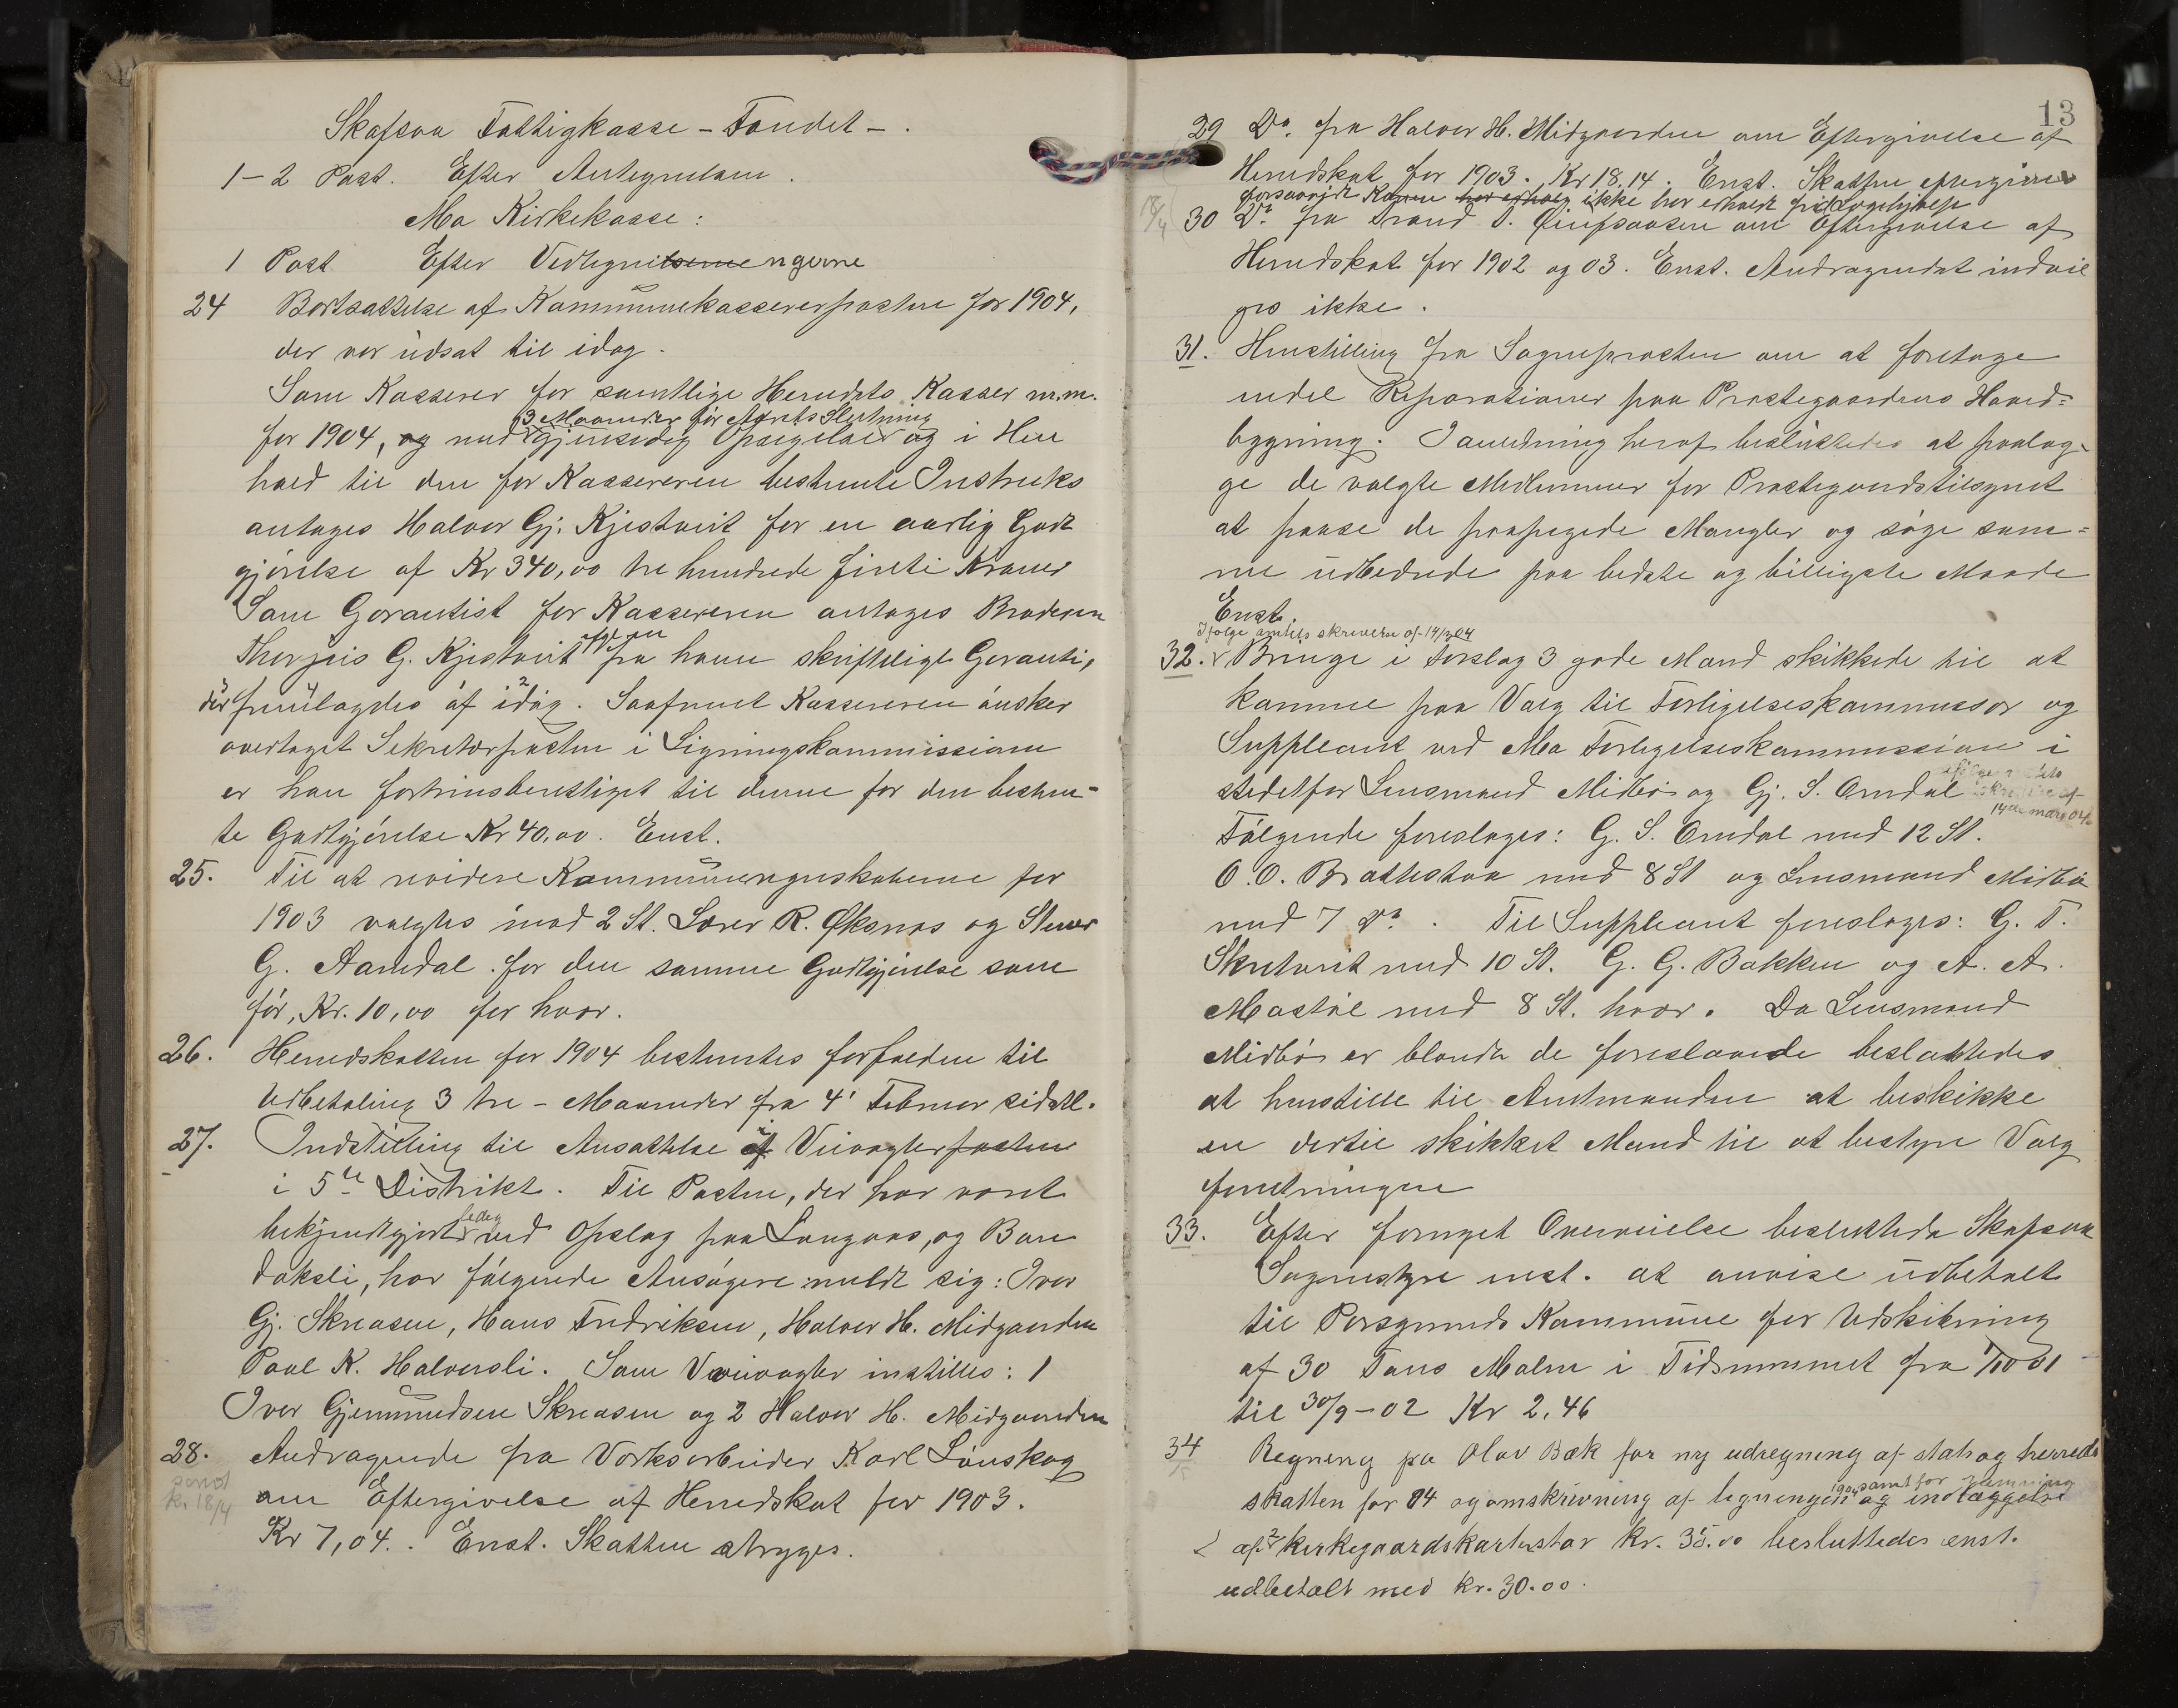 Skafsaa Fattigkasse-Fondet-.
1-2 Post. Efter Antegnelsen.
Mo Kirkekasse:
1 Post Efter Vedtegnitserne ngerne
24 Bortsættelse af Kommunekassererposten for 1904,
der var udsat til idag.
Som Kasserer for samtlige Herredets Kasser m.m.
3 Maaneder før Aarets Slutning
for 1904, og med gjensidig Opsigelse og i Hen
hold til den for Kassereren bestemte Instruks
antages Halvor Gj. Kjestveit for en aarlig Godt
gjørelse af Kr 340,00 tre hundrede firti Kroner
Som Garantist for Kassereren antages Broderen
Thorgeis G. Kjestveit fra ham skriftligt Garanti,
der fremlagdes af idag. Saafremt Kassereren ønsker
overtaget Sekretærposten i Ligningskommissionen
er han fortrinsberettiget til denne for den bestem-
te Godtgjørelse Kr 40,00. Enst.
25. Til at revidere Kommuneregnskaberne for
1903 valgtes mod 2 St. Lærer R. Øksnæs og Stener
G. Aamdal for den samme Godtgjørelse som
før, Kr. 10,00 for hver.
26. Herredskatten for 1904 bestemtes forfalden til
Udbetaling 3 tre - Maaneder fra 4' Februar sidstl.
27. Indstilling til Ansættelse af Veivogterposten
i 5te Distrikt. Til Posten, der har været
ledig
bekjendtgjort ved Opslag paa Langaas, og Ban
daksli, har følgende Ansøgere meldt sig: Iver
Gj. Skreasen, Hans Fredriksen, Halvor H. Midgaarden
Paul K. Halvorsli. Som Veivogter instilles: 1
Iver Gjermundsen Skreasen og 2 Halvor H. Midgaarden
28. Andragende fra Værksarbeider Karl Lønskog
send
kr. 18/4
om Eftergivelse af Herredskat for 1903.
Kr 7,04. Enst. Skatten stryges.
13
29 Do. fra Halvor H. Midgaarden om Eftergivelse af
Herredskat for 1903. Kr 18.14. Enst. Skatten eftergives
forsaavidt Konen har erholdt ikke har erholdt
18/4
30 Do. fra Trond O. om Eftergivelse af
Herredskat for 1902 og 03. Enst. Andragendet indvil
ges ikke.
31. Henstilling fra Sognepresten om at foretage
endel Reparationer paa Prestegaardens Hoved-
bygning. I anledning heraf besluttedes at paalæg-
ge de valgte Medlemmer for Prestegaardstilsynet
at paase de paapegede Mangler og søge sam-
me udbedrede paa bedste og billigste Maade
Enst.
Ifølge amtets skrivelse af 14/3 04
32. Bringe i Forslag 3 gode Mænd skikkede til at
komme paa Valg til Forligelseskommissær og
Suppleant ved Mo Forligelseskommission i
stedetfor Lensmand Midbø og Gj. S. Omdal ifølge amtets
skrivelse af
14de mars 04
Følgende foreslages: G. S. Omdal med 12 St.
O. O. Brattestaa med 8 St og Lensmand Midbø
med 7 Do. Til Suppleant foreslages: G. T.
Skretveit med 10 St. G. G. Bakken og A. A.
Mostøl med 8 St. hver. Da Lensmand
Midbø er blandt de foreslaaede besluttedes
at henstille til Amtmanden at beskikke
en dertil skikket Mand til at bestyre Valg
foretningen
33. Efter fornyet Overveielse besluttede Skafsaa
Sognestyre enst. at anvise udbetalt
til Porsgrunds Kommune for Udskibning
af 30 Tons Malm i Tidsrummet fra 1/10 01
til 30/9-02 Kr 2.46
34 Regning fra Olav Bæk for ny udregning af stats og herreds
1904 samt for
skatten for 04 og omskrivning af ligningen og indlæggelse
af 2 kirkegaardskarter stor kr. 35.00 besluttedes enst.
udbetalt med kr. 30.00.